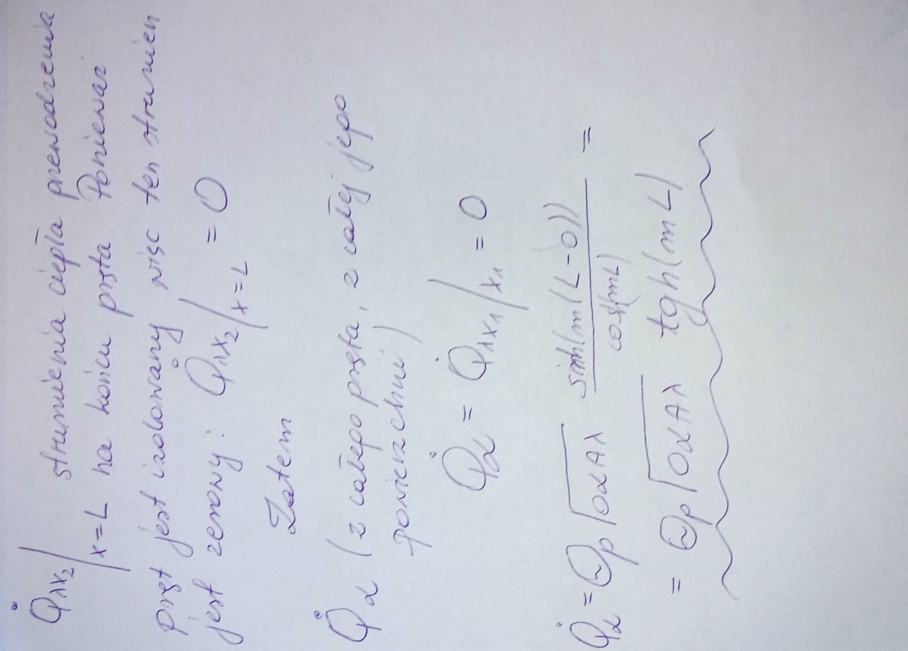 Q̇λx₂|x=L strumienia ciepła przewodzenia
na końcu pręta Ponieważ
pręt jest izolowany więc ten strumień
jest zerowy: Q̇λx₂|x=L = 0
Zatem
Q̇α (z całego pręta, z całej jego
powierzchni)
Q̇α = Q̇λx₁|x₁ = 0
Q̇α = Θp √OαAλ sinh(m(L-0))/cosh(mL) =
= Θp √OαAλ tgh(mL)